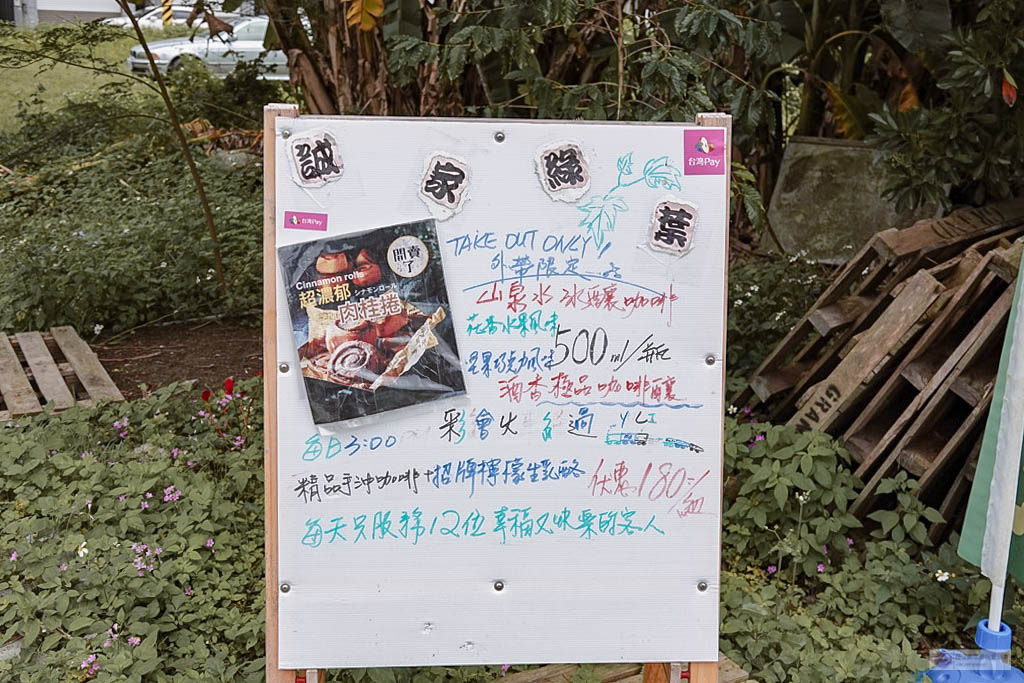 誠家綠葉
台灣Pay
台灣Pay
開賣了
Cinnamon rolls
超濃郁 シナモンロール
肉桂捲
TAKE OUT ONLY!
外帶限定
山泉水冰釀咖啡
花香水果風味
堅果巧克力風味
500ml/瓶
酒香極品咖啡釀
每日3:00
彩會火 過 YLI
精品手沖咖啡+招牌檸檬生乳酪 优惠180元/組
每天只服務12位幸福又快樂的客人
GRA